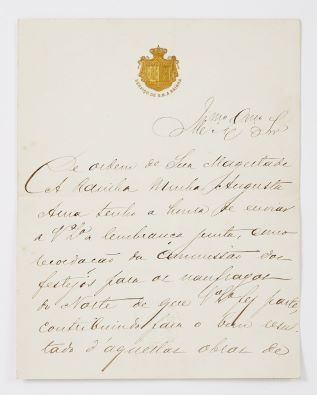 SERVIÇO DE S.M. A RAINHA
De ordem de Sua Magestade
A Rainha Minha Augusta
Ama tenho a honra de enviar
a V. Exª a lembrança junta, como
recordação da commissão dos
festejos para os naufragos
do Norte de que V. Exª fez parte,
contribuindo para o bom resul-
tado d'aquellas obras de